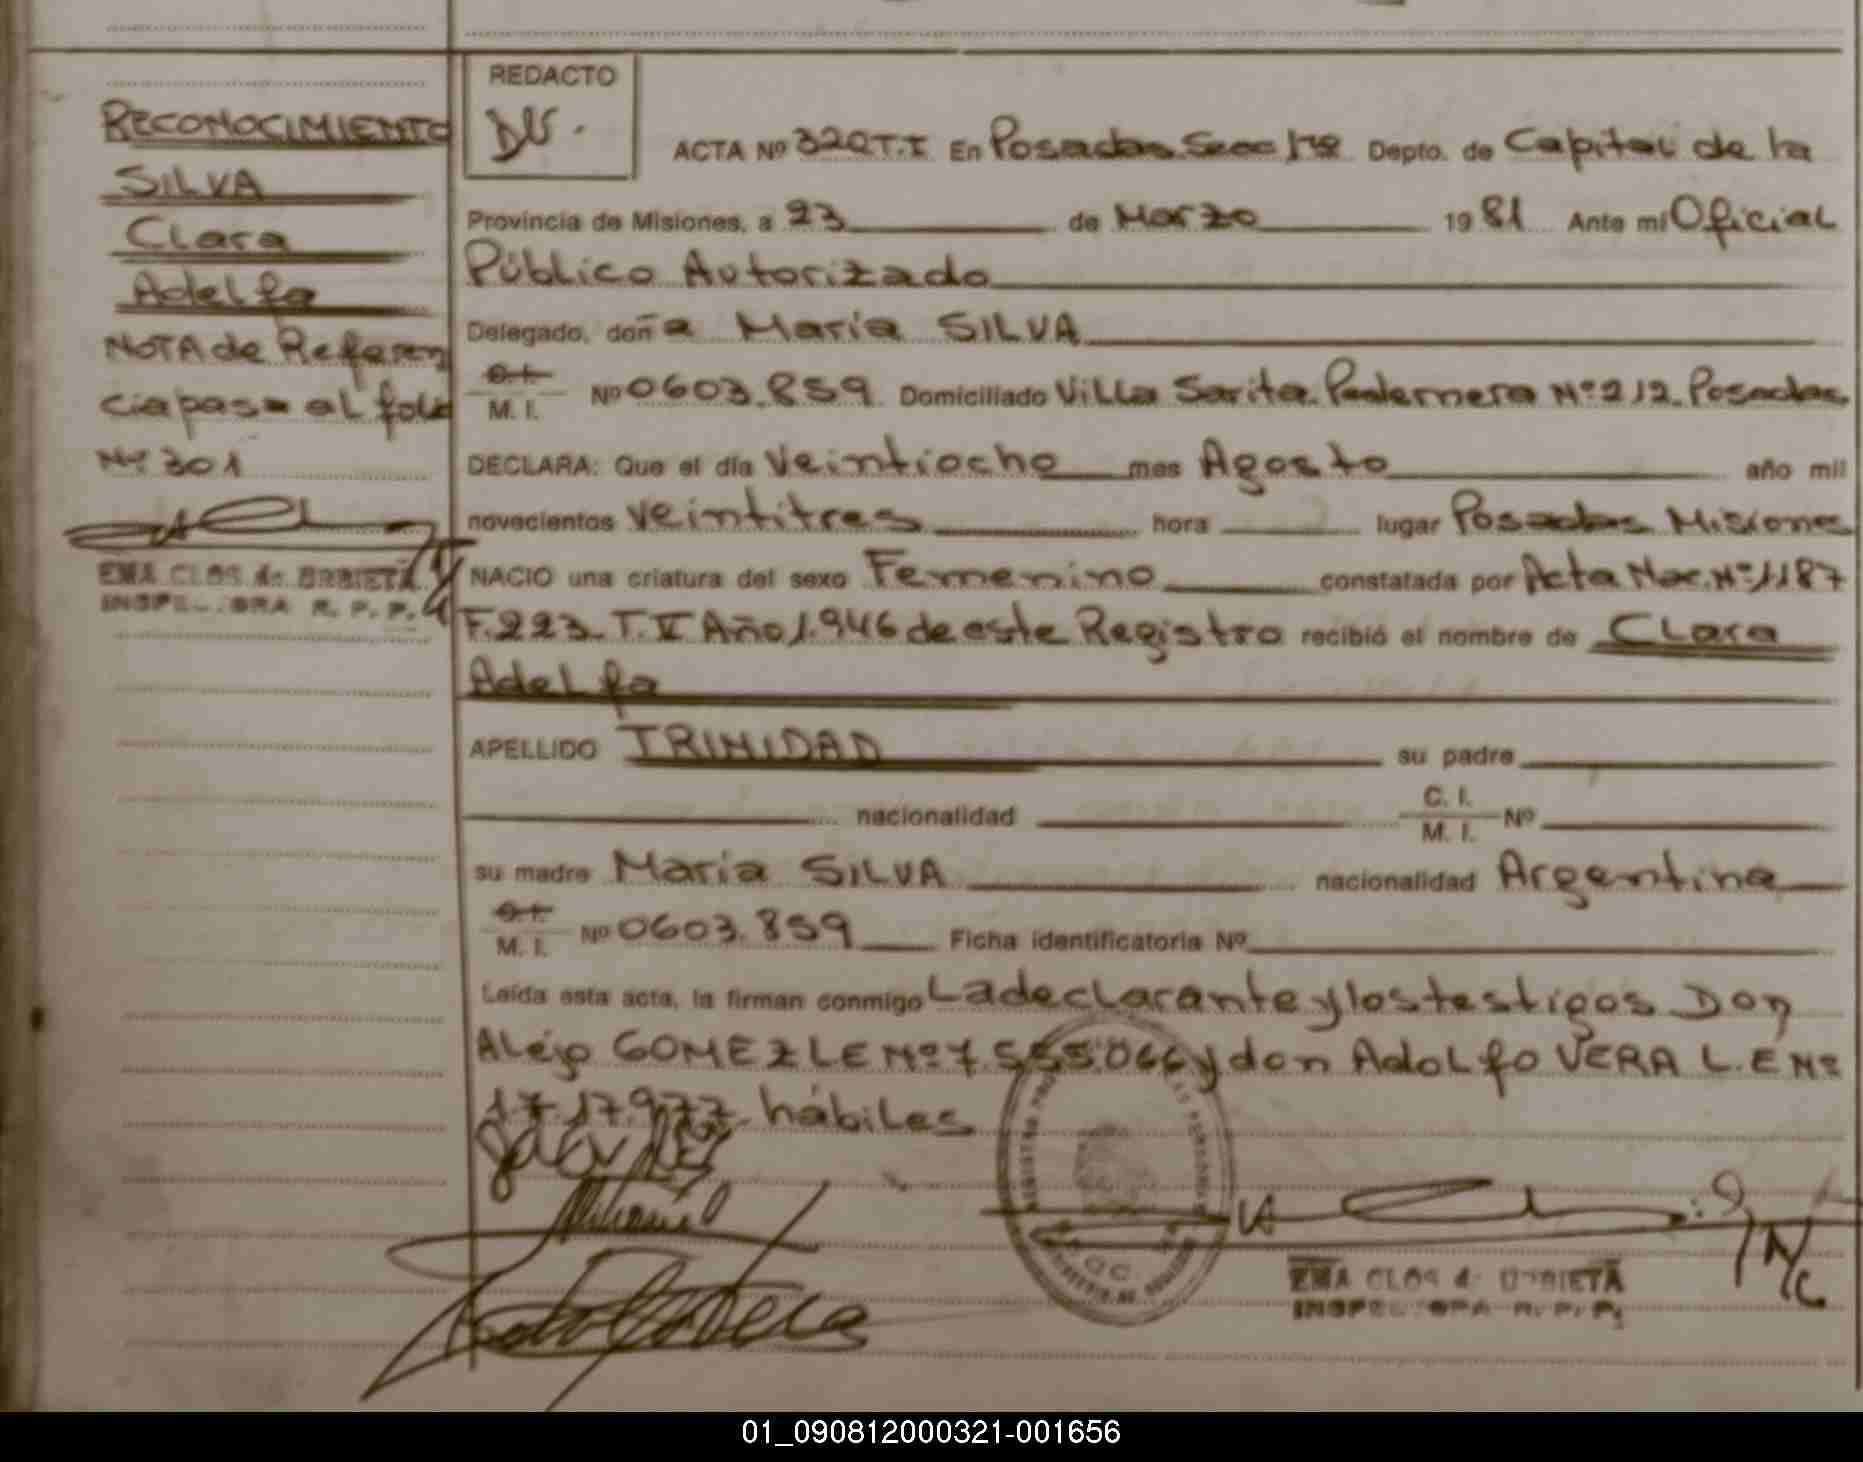 RECONOCIMIENTO
SILVA
Clara
Adelfa
NOTA de Referen
cia pasa al folio
Nº 301
EMA CLOS de URBIETA
INSPECTORA R. P. P.
REDACTO
ACTA Nº 320 T.I En Posadas Secc 1ra Depto. de Capital de la
Provincia de Misiones, a 23 de Marzo 1981 Ante mi Oficial
Público Autorizado
Delegado, doña María SILVA
C. I.
M. I. Nº 0603.859 Domiciliado Villa Sarita Pedernera Nº 212 Posadas
DECLARA: Que el día Veintiocho mes Agosto año mil
novecientos veintitres hora lugar Posadas Misiones
NACIO una criatura del sexo Femenino constatada por Acta Nac. Nº 1187
F. 223 T. II Año 1.946 de este Registro recibió el nombre de Clara
Adelfa
APELLIDO TRINIDAD su padre
nacionalidad C. I. M. I. Nº
su madre María SILVA nacionalidad Argentina
C. I.
M. I. Nº 0603.859 Ficha identificatoria Nº
Leída esta acta, la firman conmigo La declarante y los testigos Don
Alejo GOMEZ L E Nº 7.555.066 y don Adolfo VERA L. E Nº
hábiles
EMA CLOS de URBIETA
INSPECTORA R. P. P.
01_090812000321-001656